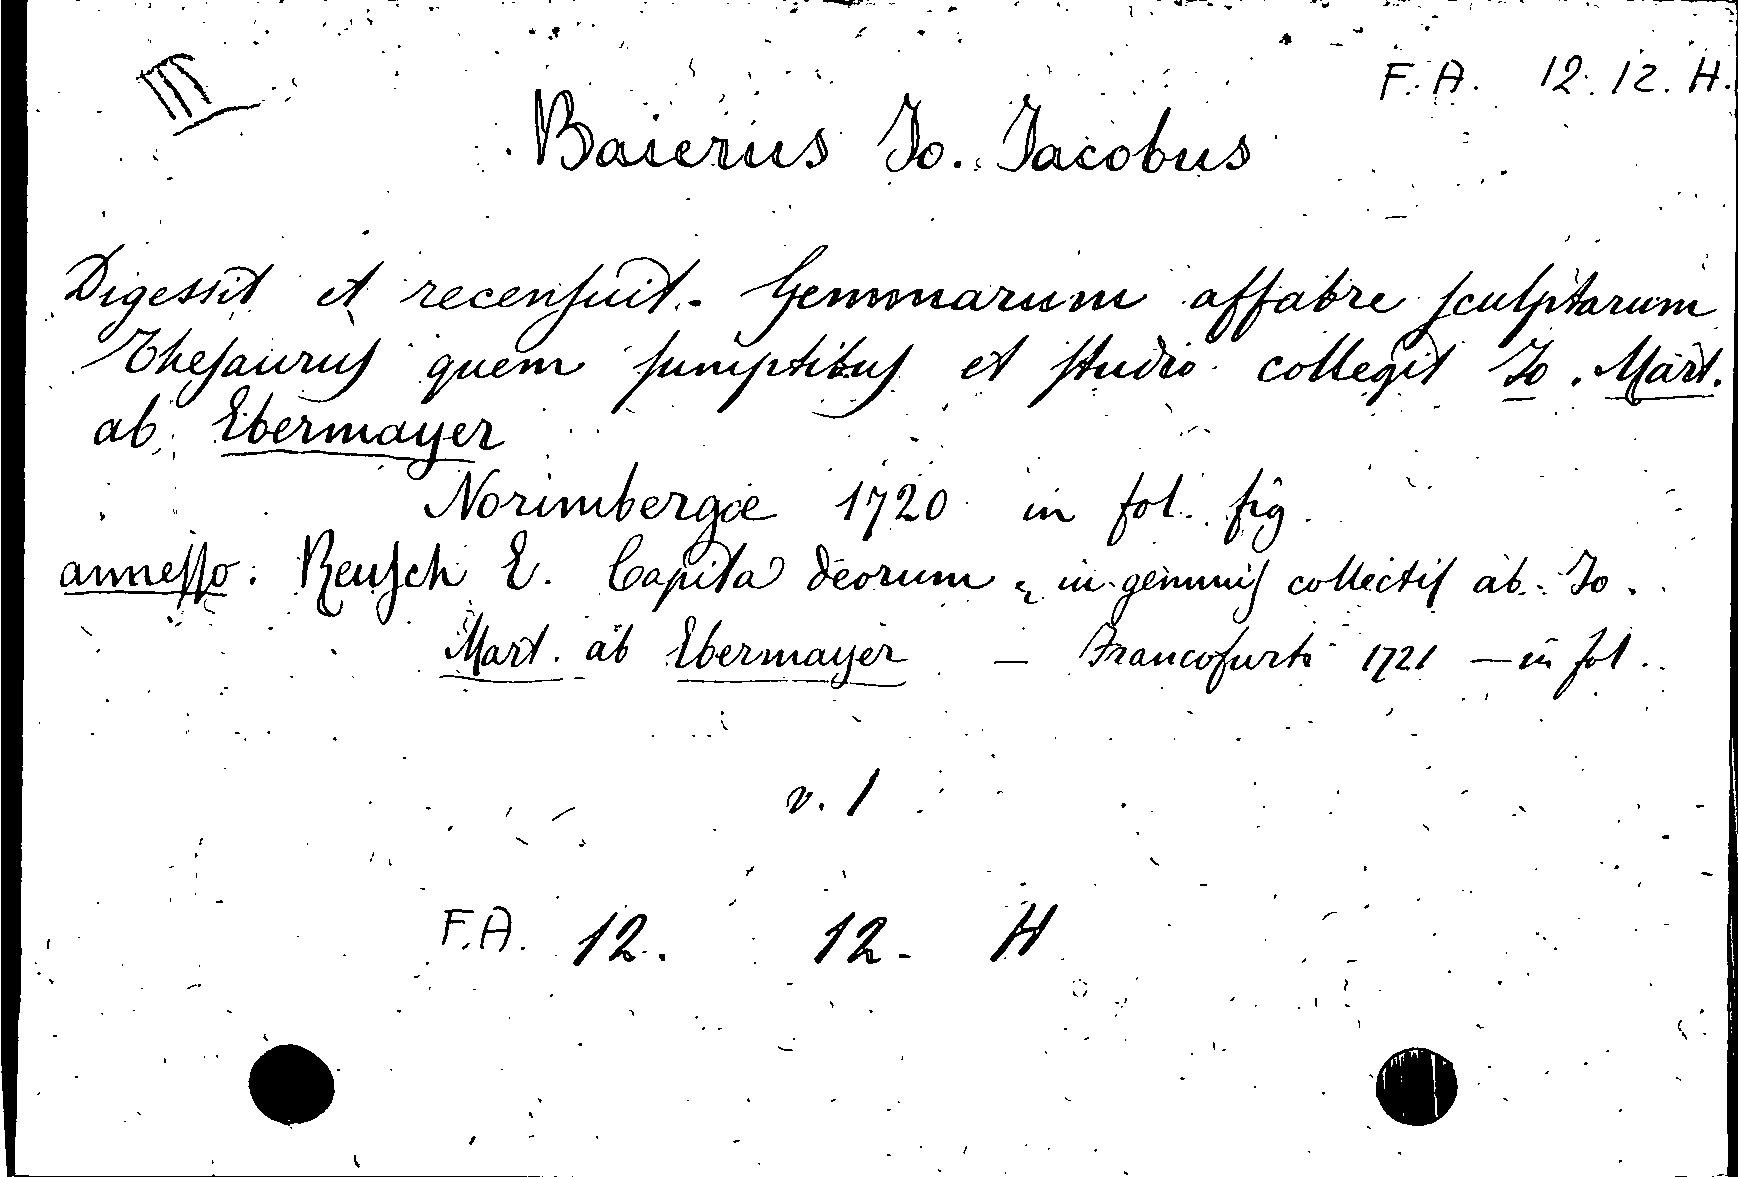 III
F. A. 12. 12. H.
Baierus Jo. Jacobus
Digessit et recenſuit. - Gemmarum affabre ſculptarum
Theſaurus quem ſumptibus et ſtudio collegit Jo. Mart.
ab Ebermayer
Norimbergæ 1720 in fol. fig.
anneſſo. Reuſch E. Capita deorum in gemmis collectis ab Jo.
Mart. ab Ebermayer — Francofurti 1721 — in fol.
v. 1
F.A. 12. 12. H